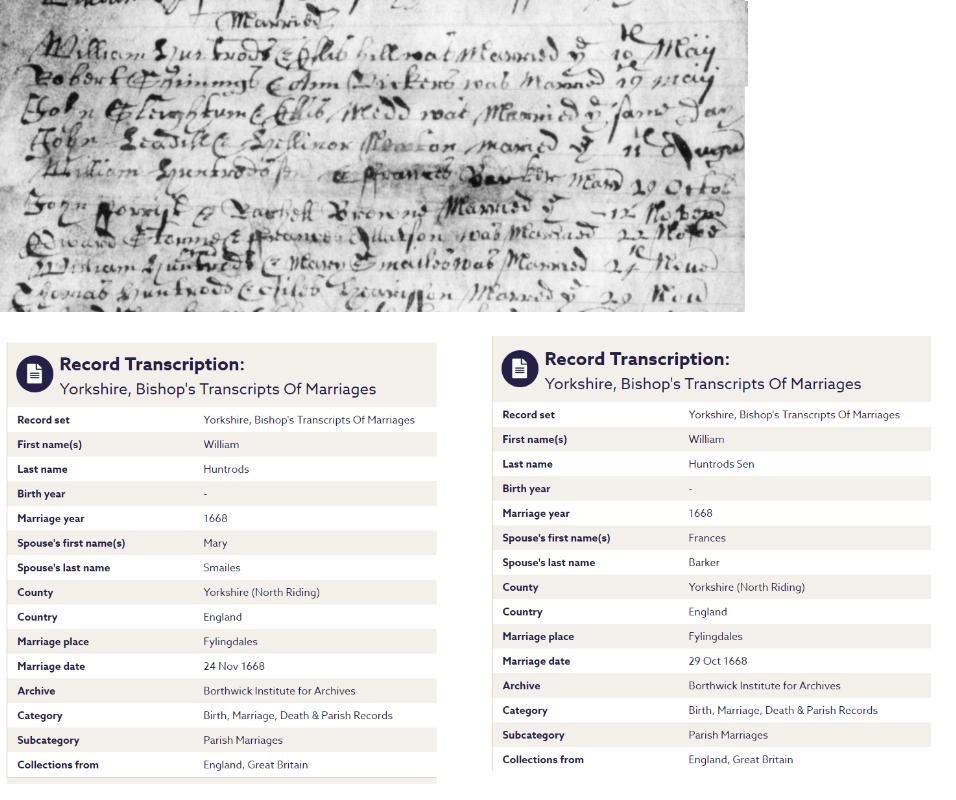 Married
William Huntrods & Ellis hill was Married ye 19th Maij
Robert & Ann Vickers was Married 29 maij
John & Ellis Medd was Married ye same day
John Leadill & Hellinor maried ye 11th August
William Huntrods sen & Frances Barker Mard 29 Octob
John & Rachell Browne Married ye 12 Nober
Edward Storme & Frances was Married 22 Nober
William Huntrods & Mary Smailes was Married 24th Nov
Thomas Huntrods & Harrisson Married ye 29 Nov
Record Transcription:
Yorkshire, Bishop's Transcripts Of Marriages
Record set Yorkshire, Bishop's Transcripts Of Marriages
First name(s) William
Last name Huntrods
Birth year -
Marriage year 1668
Spouse's first name(s) Mary
Spouse's last name Smailes
County Yorkshire (North Riding)
Country England
Marriage place Fylingdales
Marriage date 24 Nov 1668
Archive Borthwick Institute for Archives
Category Birth, Marriage, Death & Parish Records
Subcategory Parish Marriages
Collections from England, Great Britain
Record Transcription:
Yorkshire, Bishop's Transcripts Of Marriages
Record set Yorkshire, Bishop's Transcripts Of Marriages
First name(s) William
Last name Huntrods Sen
Birth year -
Marriage year 1668
Spouse's first name(s) Frances
Spouse's last name Barker
County Yorkshire (North Riding)
Country England
Marriage place Fylingdales
Marriage date 29 Oct 1668
Archive Borthwick Institute for Archives
Category Birth, Marriage, Death & Parish Records
Subcategory Parish Marriages
Collections from England, Great Britain